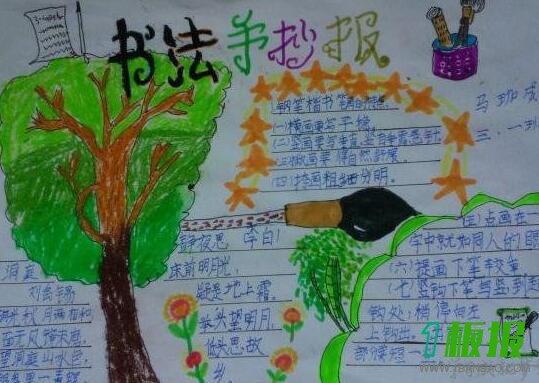 书法手抄报
钢笔楷书笔画的特点
(一)横画要写平稳
(二)竖画要写垂直,
(三)撇画要 得自然舒展
(四)捺画粗细分明。
三、一班
静夜思 李白
床前明月光,
疑是地上霜。
举头望明月,
低头思故
乡
洞庭
刘禹锡
湖光秋月两相和
潭面无风镜未磨。
望洞庭山水色,
(五)点画在一
字中就如同人的眼
(六)提画下笔较重
(七)竖钩下笔与竖
钩处:稍停向左
上钩出
板报